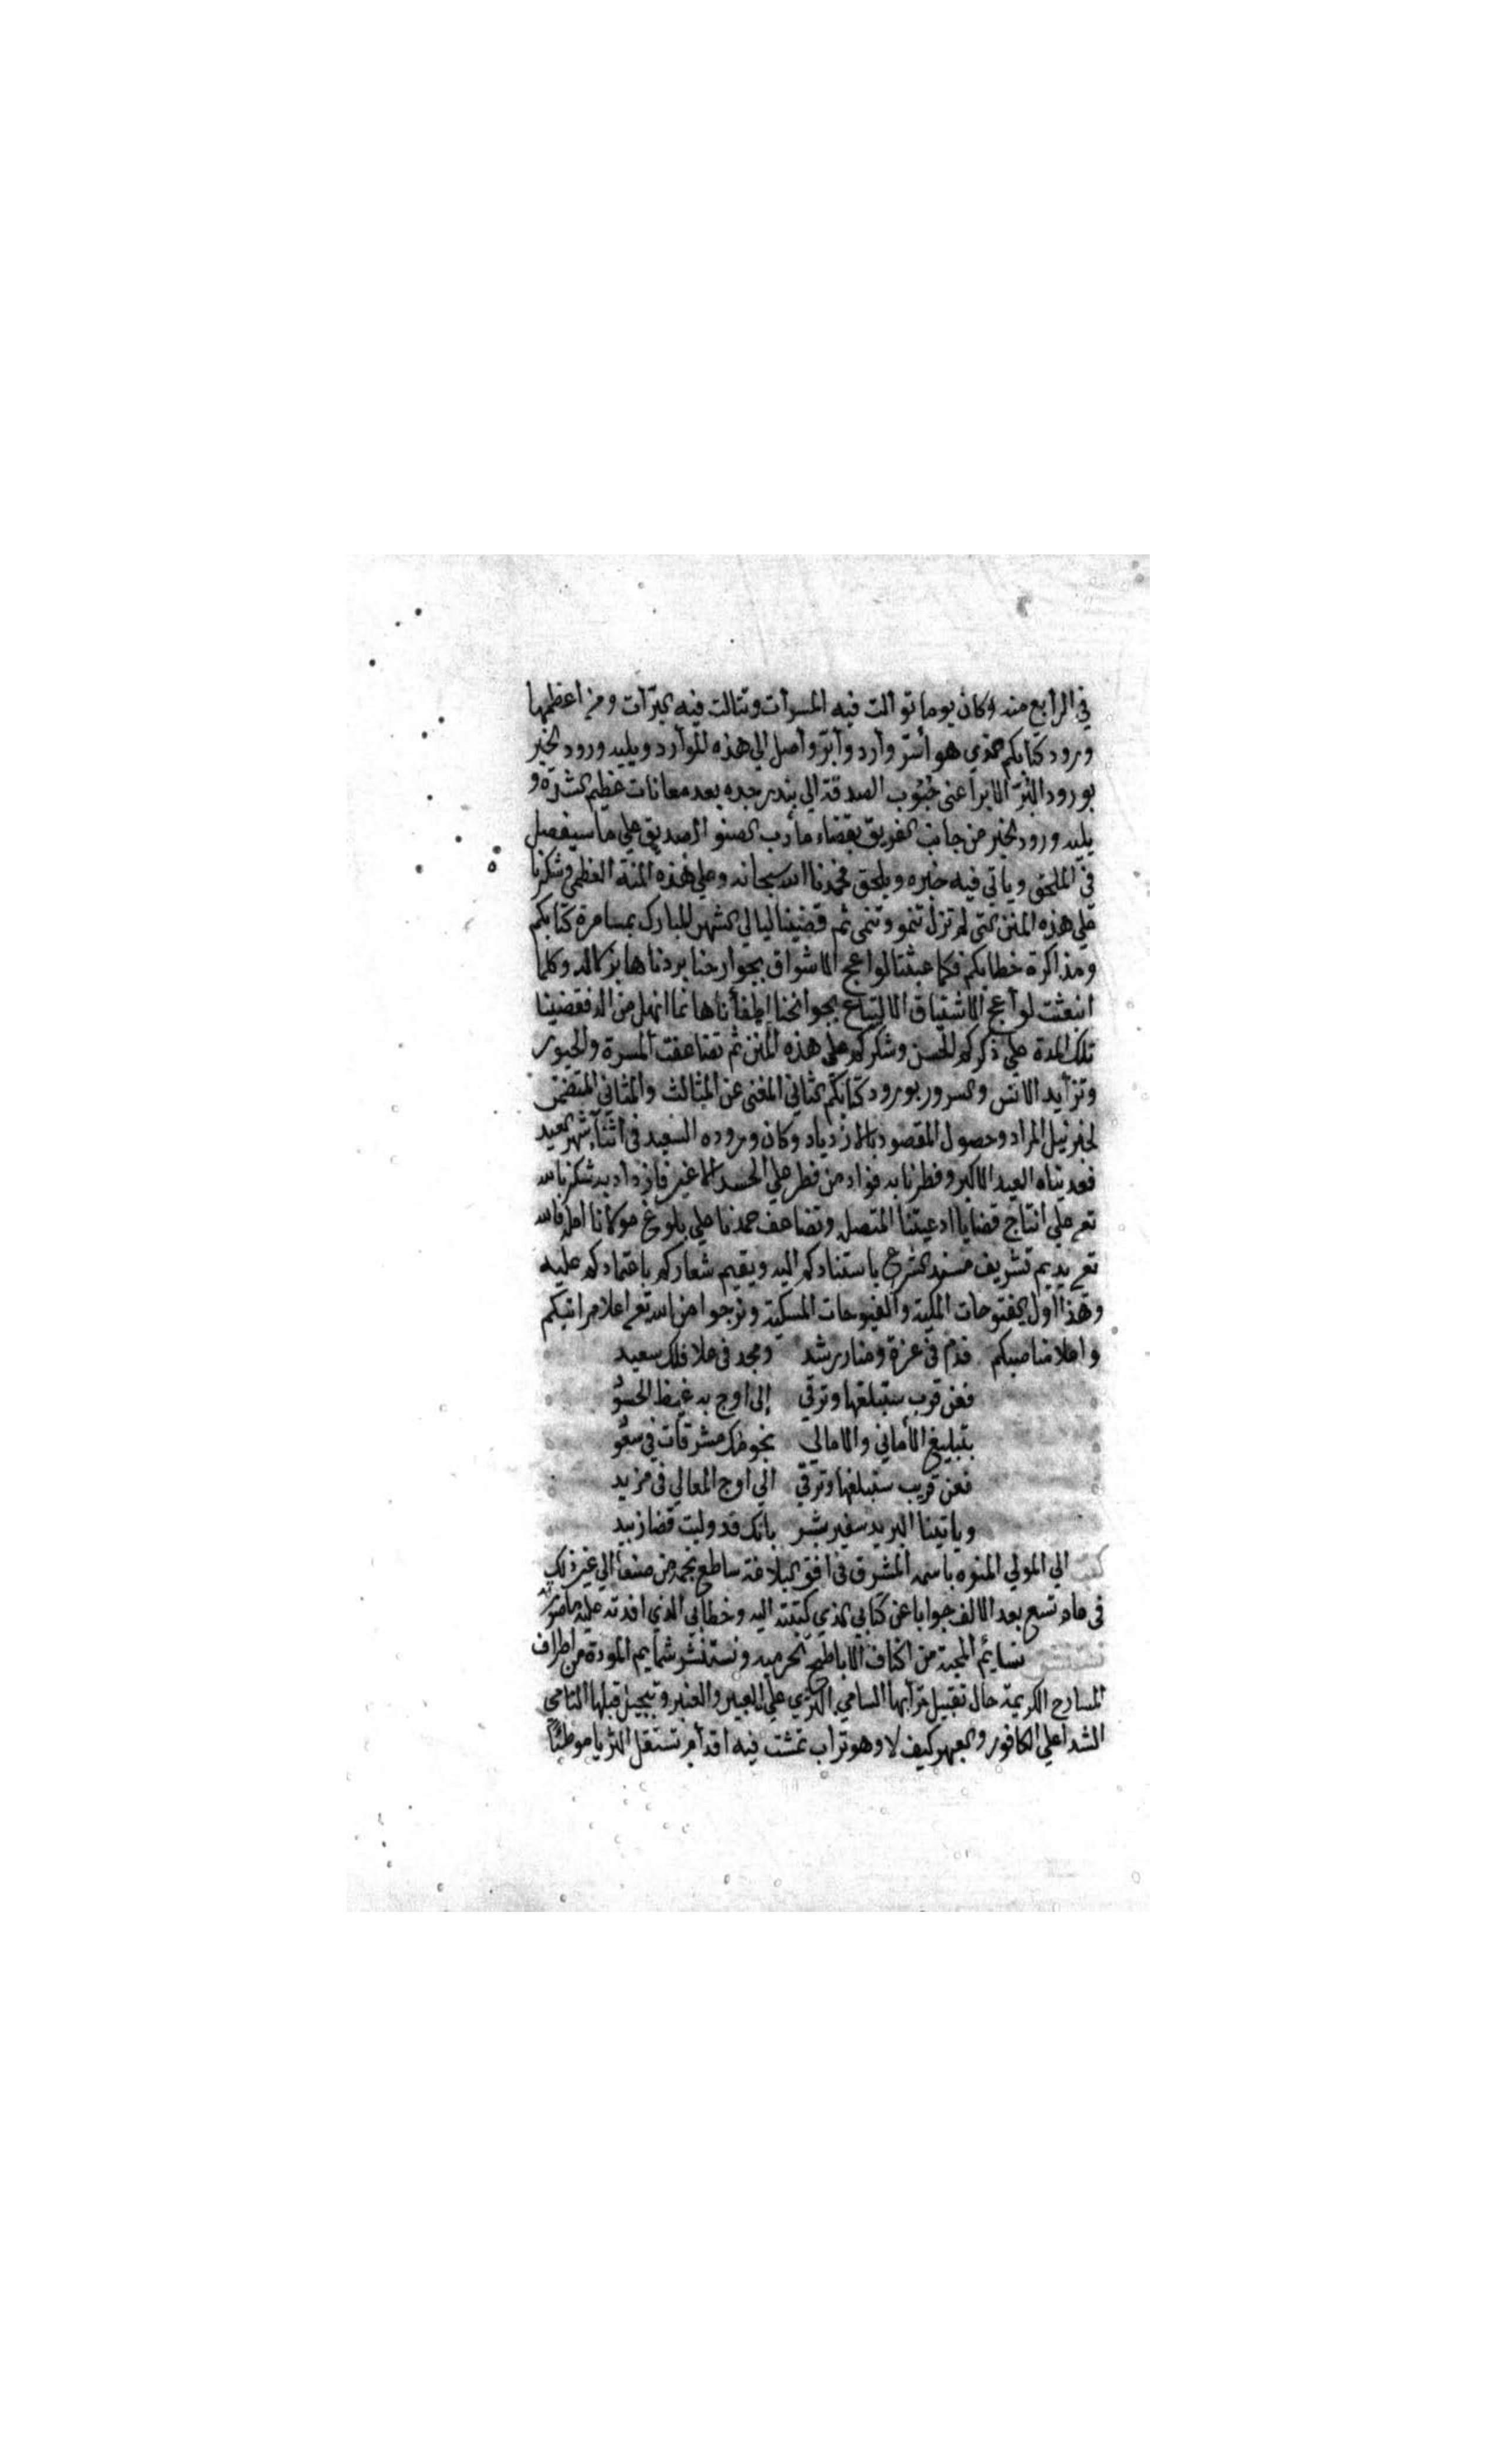 في الرابع منه وكان يوما توالت فيه المسرات وتتالت فيه المبرّات ومن أعظمها
ورود كتابكم الذي هو أسرّ وارد وأبرّ واصل الي هذه الموارد ويليه ورود الخبر
بورود البرّ الابر اعني حبوب الصدقة الي بندر جده بعد معانات عظيم الشدّة و
يليه ورود الخبر من جانب الفريق بقضاء مأرب الصنو الصديق علي ما سيفصل
في الملحق وياتي فيه خبره ويلحق فحمدنا الله سبحانه وعلي هذه المنة العظمي وشكرنا
علي هذه المنن التي لم تزل تنمو وتنمى ثم قضينا ليالي الشهر المبارك بمسامرة كتابكم
ومذاكرة خطابكم فكلما عبثتا لواعج الاشواق بجوارحنا بردناها بزلاله وكلما
انبعثت لواعج الاشتياق الالتياع بجوانحنا اطفأناها بما انهل من الـه فقضينا
تلك المدة علي ذكركم الحسن وشكركم علي هذه المنن ثم تضاعفت المسرة والحبور
وتزايد الانس والسرور بورود كتابكم الثاني المغني عن المثالث والمثاني المتضمن
لخبر نيل المراد وحصول المقصود بالازدياد وكان وروده السعيد في اثناء شهر العيد
فعديناه العيد الاكبر وفطرنا به فواد من فطر علي الحسد الاغير فازداد به شكرنا لله
تع علي انتاج قضايا ادعيتنا المتصله وتضاعف حمدنا علي بلوغ مولانا امله فالله
تع يديم تشريف مسند الشرع باستنادكم اليه ويقيم شعاركم باعتمادكم عليه
وهذا اول الفتوحات المكية والفيوحات المسكية ونرجوا من الله تع اعلا مراتبكم
واعلا مناصبكم فدم في عزة ومنار رشد ومجد في علا فلك سعيد
فعن قرب ستبلغها وترقي إلى اوج به غيظ الحسود
بتبليغ الأماني والامالي نجومك مشرقات في سعود
فعن قريب ستبلغها وترقي الي اوج المعالي في مزيد
وياتينا البريد سفير بشر بانك قد وليت قضا زبيد
كتب الي المولي المنوه باسمه المشرق في افق البلاغة ساطع نجمه من صنعا الي غير ذلك
في عام تسع بعد الالف جوابا عن كتابي الذي كتبته اليه وخطابي الذي افدته عليه ما صورته
نسائم المحبة من اكناف الاباطح الحرميه ونستنشر شمايم المودة من اطراف
المسارح الكريمة حال تقبيل ترابها السامي المزري علي العبير والعنبر وتبجيل قبلها النامي
الشذا علي الكافور والعبهر كيف لا وهو تراب تمشت فيه اقدام تستقل الثريا موطئًا